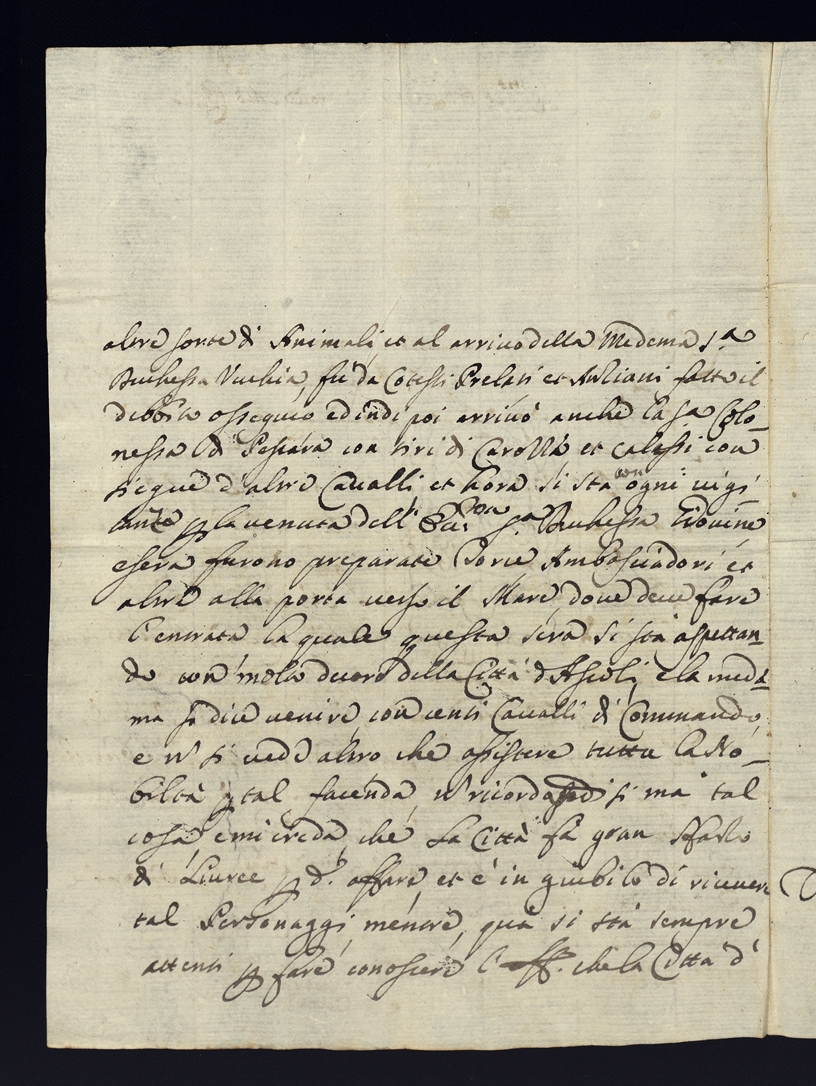 altre sorte di Animali, et al arrivo della Medema S.ra
Duchessa Vechia, fù da Cotesti Prelati et Anziani fatto il
debbito ossequio ed indi poi arrivò anche la S.ra Colo-
nessa di Pescara con tiri di Carozza et calessi con
siegue d'altri Cavalli et hora si sta con ogni vigi-
lanza p la venuta dell' S.ra Duchessa
e sera furono preparate Ambosciadori et
altri alla porta verso il Mare, dove deve fare
l'entrata la quale questa sera si stà aspettan-
do con molto decoro della Città d'Ascoli, e la mede-
ma si dice venire con centi Cavalli di Commando,
e n' si vede altro che assistere tutta la No-
biltà p tal facenda, n' ricordasi mai tal
cosa, e mi creda, che La Città fà gran sfarzo
di Livree p d.o affare, et è in giubilo di ricevere
tal Personaggi, mentre, quà si stà sempre
attenti p fare conoscere l' che la Città d'